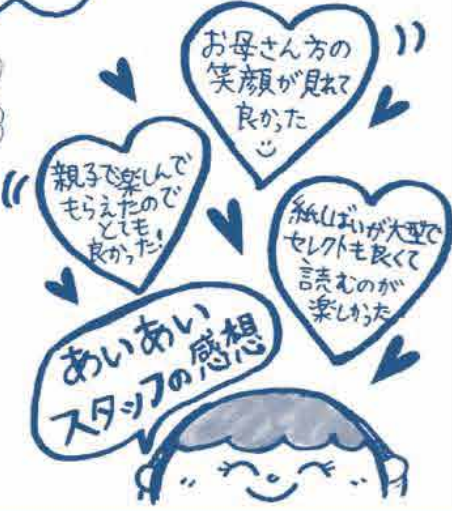 お母さん方の
笑顔が見れて
良かった
親子で楽しんで
もらえたので
とても
良かった!
紙しばいが大型で
セレクトも良くて
読むのが
楽しかった
あいあい
スタッフの感想